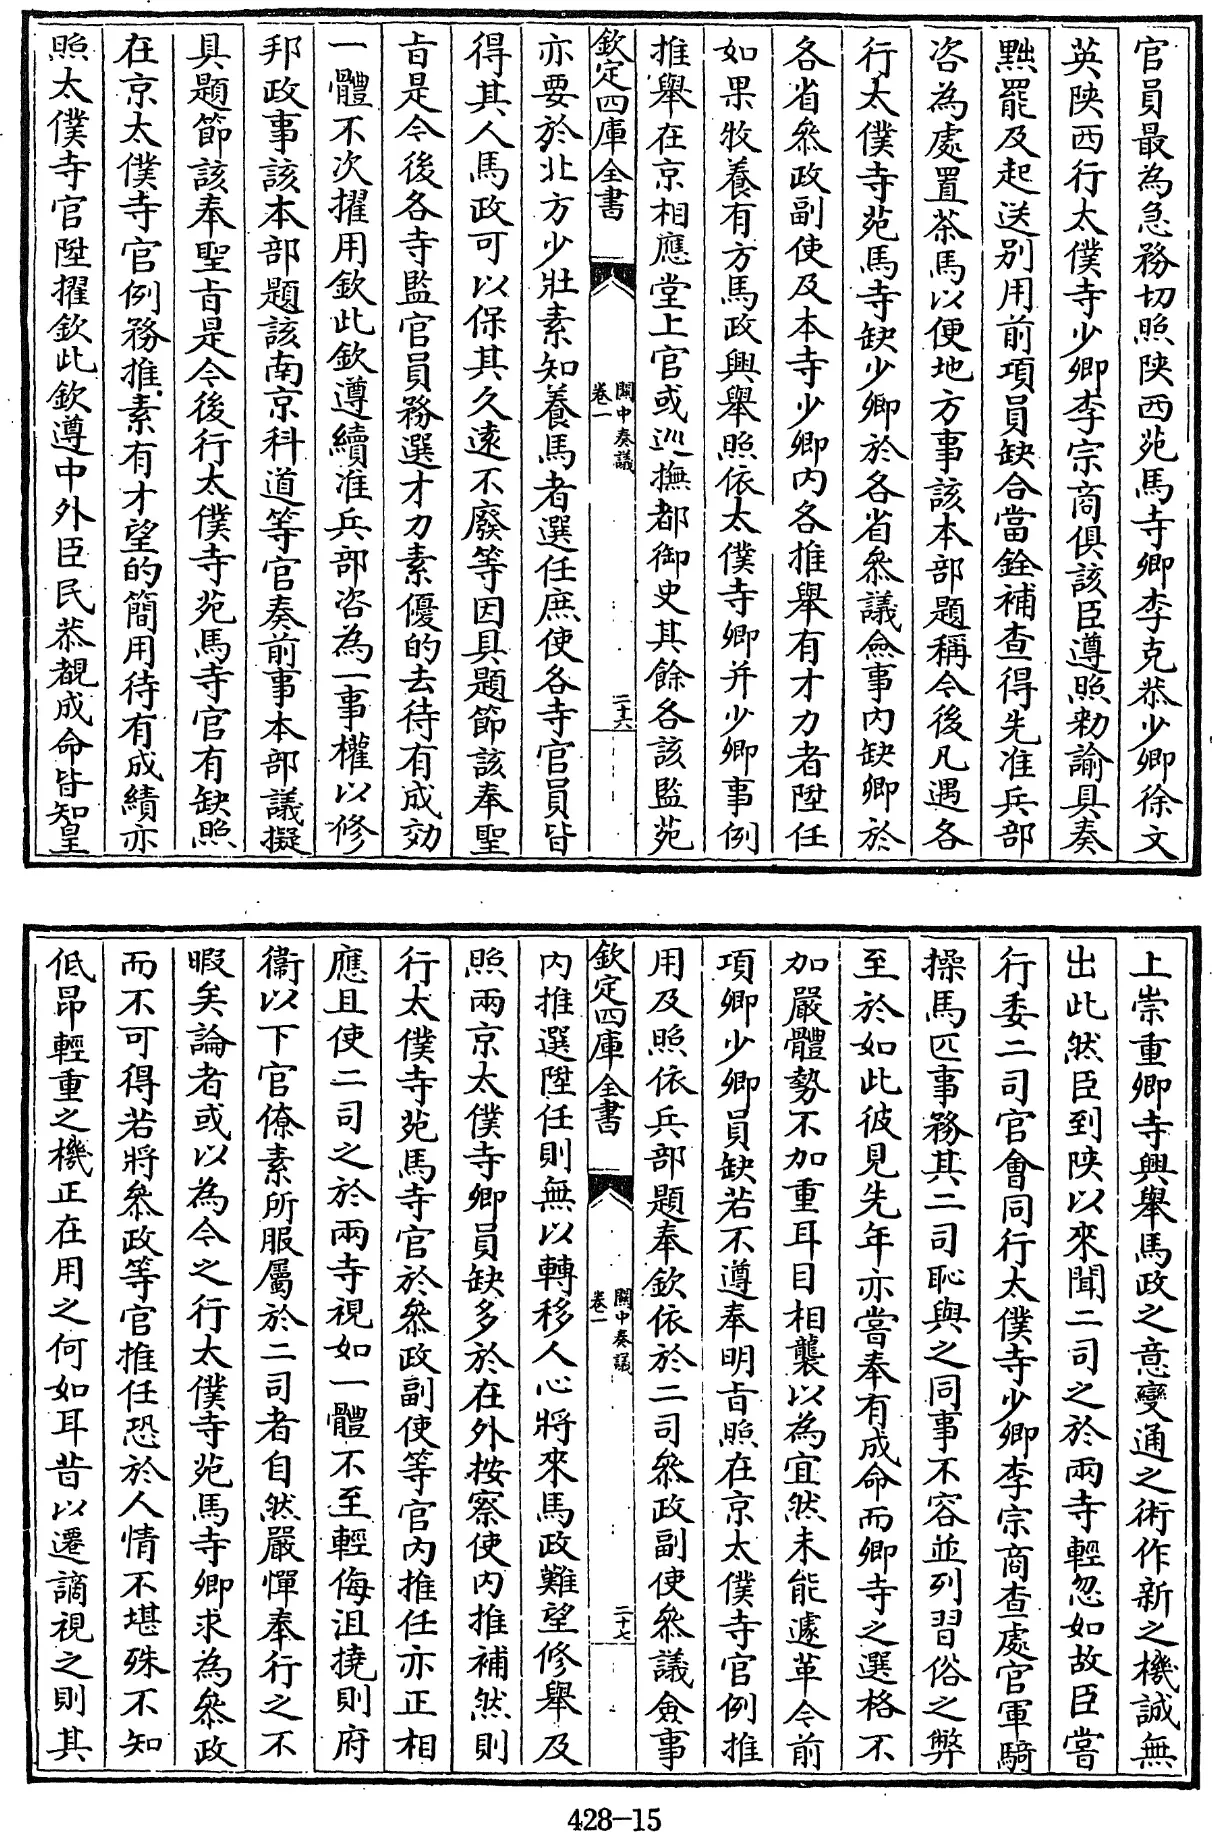 官員最為急務切照陝西苑馬寺卿李克恭少卿徐文
英陝西行太僕寺少卿李宗商俱該臣遵照勑諭具奏
黜罷及起送别用前項員缺合當銓補查得先准兵部
咨為處置茶馬以便地方事該本部題稱今後凡遇各
行太僕寺苑馬寺缺少卿於各省叅議僉事内缺卿於
各省叅政副使及本寺少卿内各推舉有才力者陞任
如果牧養有方馬政興舉照依太僕寺卿并少卿事例
推舉在京相應堂上官或廵撫都御史其餘各該監苑
欽定四庫全書
關中奏議
卷一
二十六
亦要於北方少壯素知養馬者選任庶使各寺官員皆
得其人馬政可以保其久遠不廢等因具題節該奉聖
㫖是今後各寺監官員務選才力素優的去待有成効
一體不次擢用欽此欽遵續准兵部咨為一事權以修
邦政事該本部題該南京科道等官奏前事本部議擬
具題節該奉聖㫖是今後行太僕寺苑馬寺官有缺照
在京太僕寺官例務推素有才望的簡用待有成績亦
照太僕寺官陞擢欽此欽遵中外臣民恭覩成命皆知皇
上崇重卿寺興舉馬政之意變通之術作新之機誠無
出此然臣到陝以來聞二司之於兩寺輕忽如故臣嘗
行委二司官會同行太僕寺少卿李宗商查處官軍騎
操馬匹事務其二司恥與之同事不容並列習俗之弊
至於如此彼見先年亦嘗奉有成命而卿寺之選格不
加嚴體勢不加重耳目相襲以為宜然未能遽革今前
項卿少卿員缺若不遵奉明㫖照在京太僕寺官例推
用及照依兵部題奉欽依於二司叅政副使叅議僉事
欽定四庫全書
關中奏議
卷一
二十七
内推選陞任則無以轉移人心將來馬政難望修舉及
照兩京太僕寺卿員缺多於在外按察使内推補然則
行太僕寺苑馬寺官於叅政副使等官内推任亦正相
應且使二司之於兩寺視如一體不至輕侮沮撓則府
衛以下官僚素所服屬於二司者自然嚴憚奉行之不
暇矣論者或以為今之行太僕寺苑馬寺卿求為叅政
而不可得若將叅政等官推任恐於人情不堪殊不知
低昂輕重之機正在用之何如耳昔以遷謫視之則其
428-15